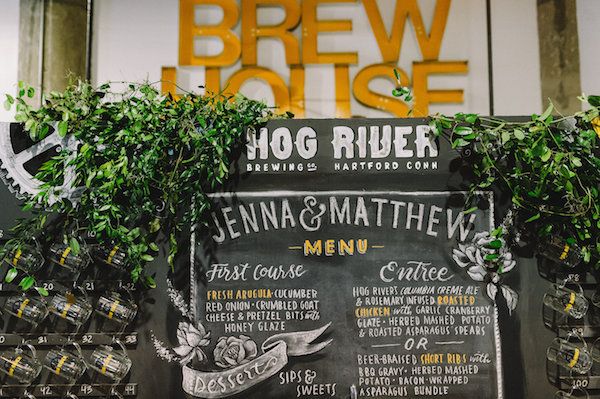 BREW
HOUSE
HOG RIVER
BREWING CO HARTFORD CONN
JENNA & MATTHEW
MENU
First Course
FRESH ARUGULA · CUCUMBER
RED ONION · CRUMBLED GOAT
CHEESE & PRETZEL BITS with
HONEY GLAZE
Desserts
SIPS &
SWEETS
Entree
HOG RIVERS COLUMBIA CREME ALE
& ROSEMARY INFUSED ROASTED
CHICKEN with GARLIC CRANBERRY
GLAZE · HERBED MASHED POTATO
& ROASTED ASPARAGUS SPEARS
OR
BEER-BRAISED SHORT RIBS with
BBQ GRAVY · HERBED MASHED
POTATO · BACON-WRAPPED
ASPARAGUS BUNDLE
20
21
22
31
32
33
42
43
44
88
100